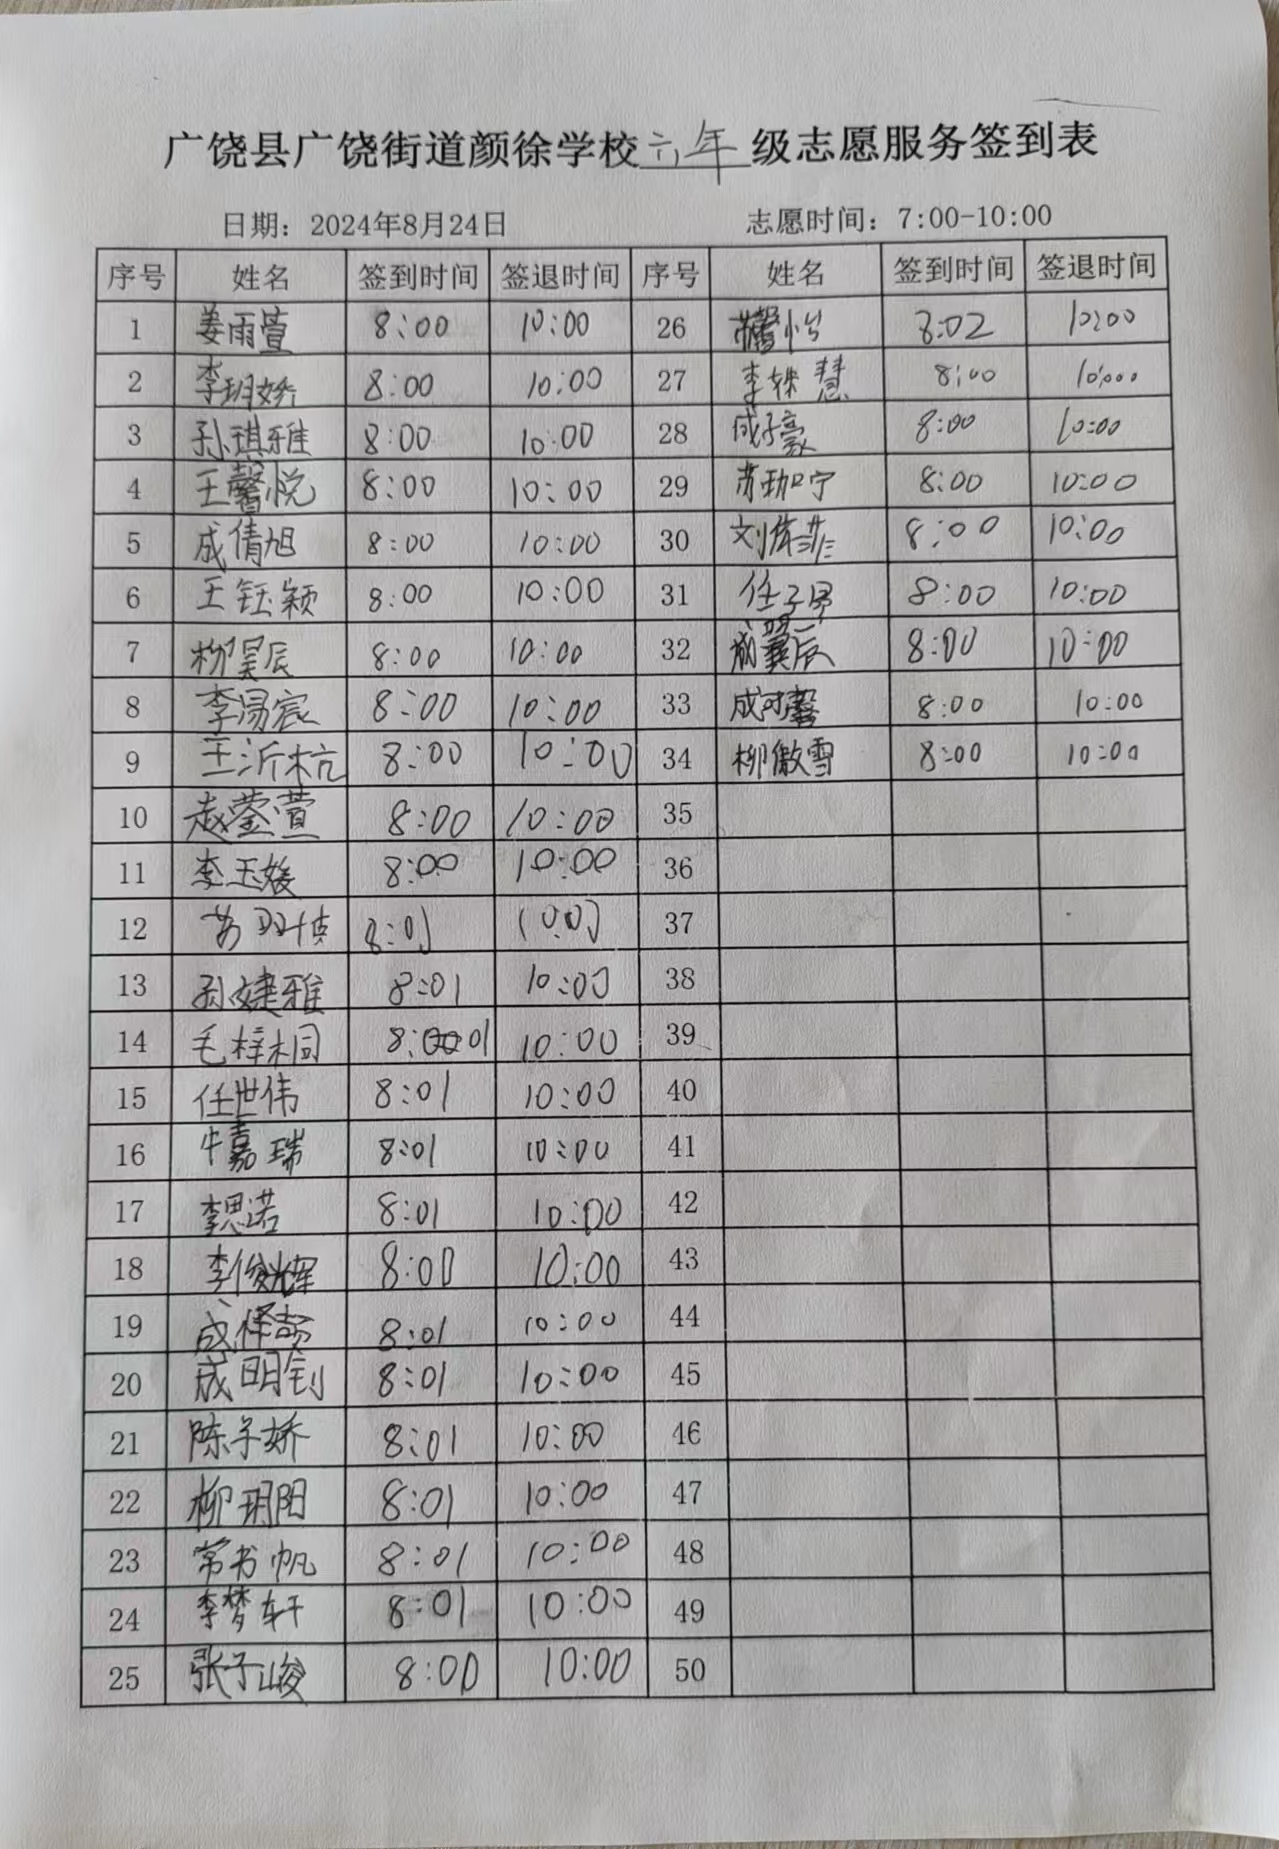 广饶县广饶街道颜徐学校六年级志愿服务签到表
日期：2024年8月24日 志愿时间：7:00-10:00
序号 姓名 签到时间 签退时间 序号 姓名 签到时间 签退时间
1 姜雨萱 8:00 10:00 26 馨怡 8:02 10:00
2 李玥娇 8:00 10:00 27 李姝慧 8:00 10:00
3 孙琪雅 8:00 10:00 28 成子豪 8:00 10:00
4 王馨悦 8:00 10:00 29 苏珈宁 8:00 10:00
5 成倩旭 8:00 10:00 30 刘 8:00 10:00
6 王钰颖 8:00 10:00 31 任子 8:00 10:00
7 柳昊辰 8:00 10:00 32 成翼辰 8:00 10:00
8 李易宸 8:00 10:00 33 成可馨 8:00 10:00
9 王沂杭 8:00 10:00 34 柳傲雪 8:00 10:00
10 赵蓥萱 8:00 10:00 35
11 李玉媛 8:00 10:00 36
12 8:01 10:00 37
13 孙婕雅 8:01 10:00 38
14 毛梓桐 8:01 10:00 39
15 任世伟 8:01 10:00 40
16 牛嘉瑞 8:01 10:00 41
17 李思诺 8:01 10:00 42
18 李俊辉 8:00 10:00 43
19 成 8:01 10:00 44
20 成明钊 8:01 10:00 45
21 陈子娇 8:01 10:00 46
22 柳玥阳 8:01 10:00 47
23 常书帆 8:01 10:00 48
24 李梦轩 8:01 10:00 49
25 张子峻 8:00 10:00 50